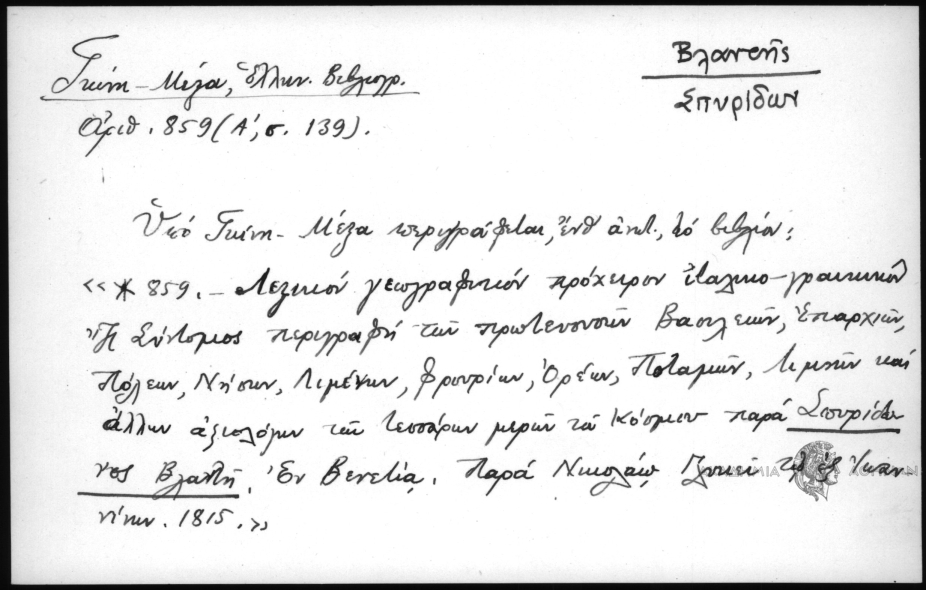 Γκίνη - Μέξα, Ἑλλην. Βιβλιογρ.
Ἀριθ. 859 (Α΄, σ. 139).
Βλαντῆς
Σπυρίδων
Ὑπό Γκίνη - Μέξα περιγράφεται, ἔνθ' ἀνωτ., τό βιβλίον:
«* 859. - Λεξικόν γεωγραφικόν πρόχειρον ἰταλικο-γραικικόν
ἤτοι Σύντομος περιγραφή τῶν πρωτευουσῶν Βασιλειῶν, Ἐπαρχιῶν,
Πόλεων, Νήσων, Λιμένων, Φρουρίων, Ὀρέων, Ποταμῶν, Λιμνῶν καί
ἄλλων ἀξιολόγων τῶν τεσσάρων μερῶν τοῦ Κόσμου παρά Σπυρίδω
νος Βλαντῆ. Ἐν Βενετίᾳ. Παρά Νικολάῳ Γλυκεῖ τῷ ἐξ Ἰωαν
νίνων. 1815.»